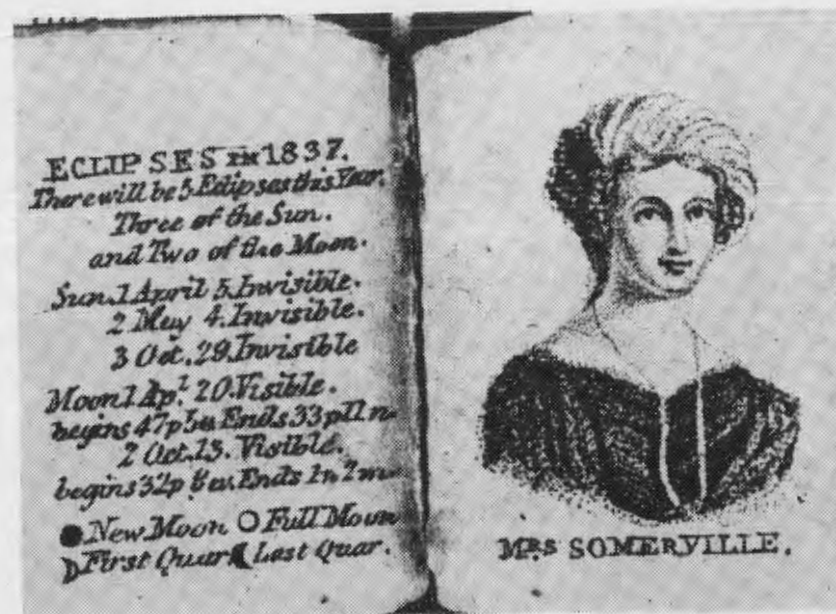 ECLIPSES IN 1837.
There will be 5 Eclipses this Year.
Three of the Sun.
and Two of the Moon.
Sun. 1 April 5. Invisible.
2 May 4. Invisible.
3 Oct. 29. Invisible
Moon 1 Ap.l 20. Visible.
begins 47p Ends 33p 11 n.
2 Oct. 13. Visible.
begins 32p 8 ev. Ends 1n 2 m.
● New Moon ○ Full Moon
☽ First Quar ☾ Last Quar.
MRS SOMERVILLE.